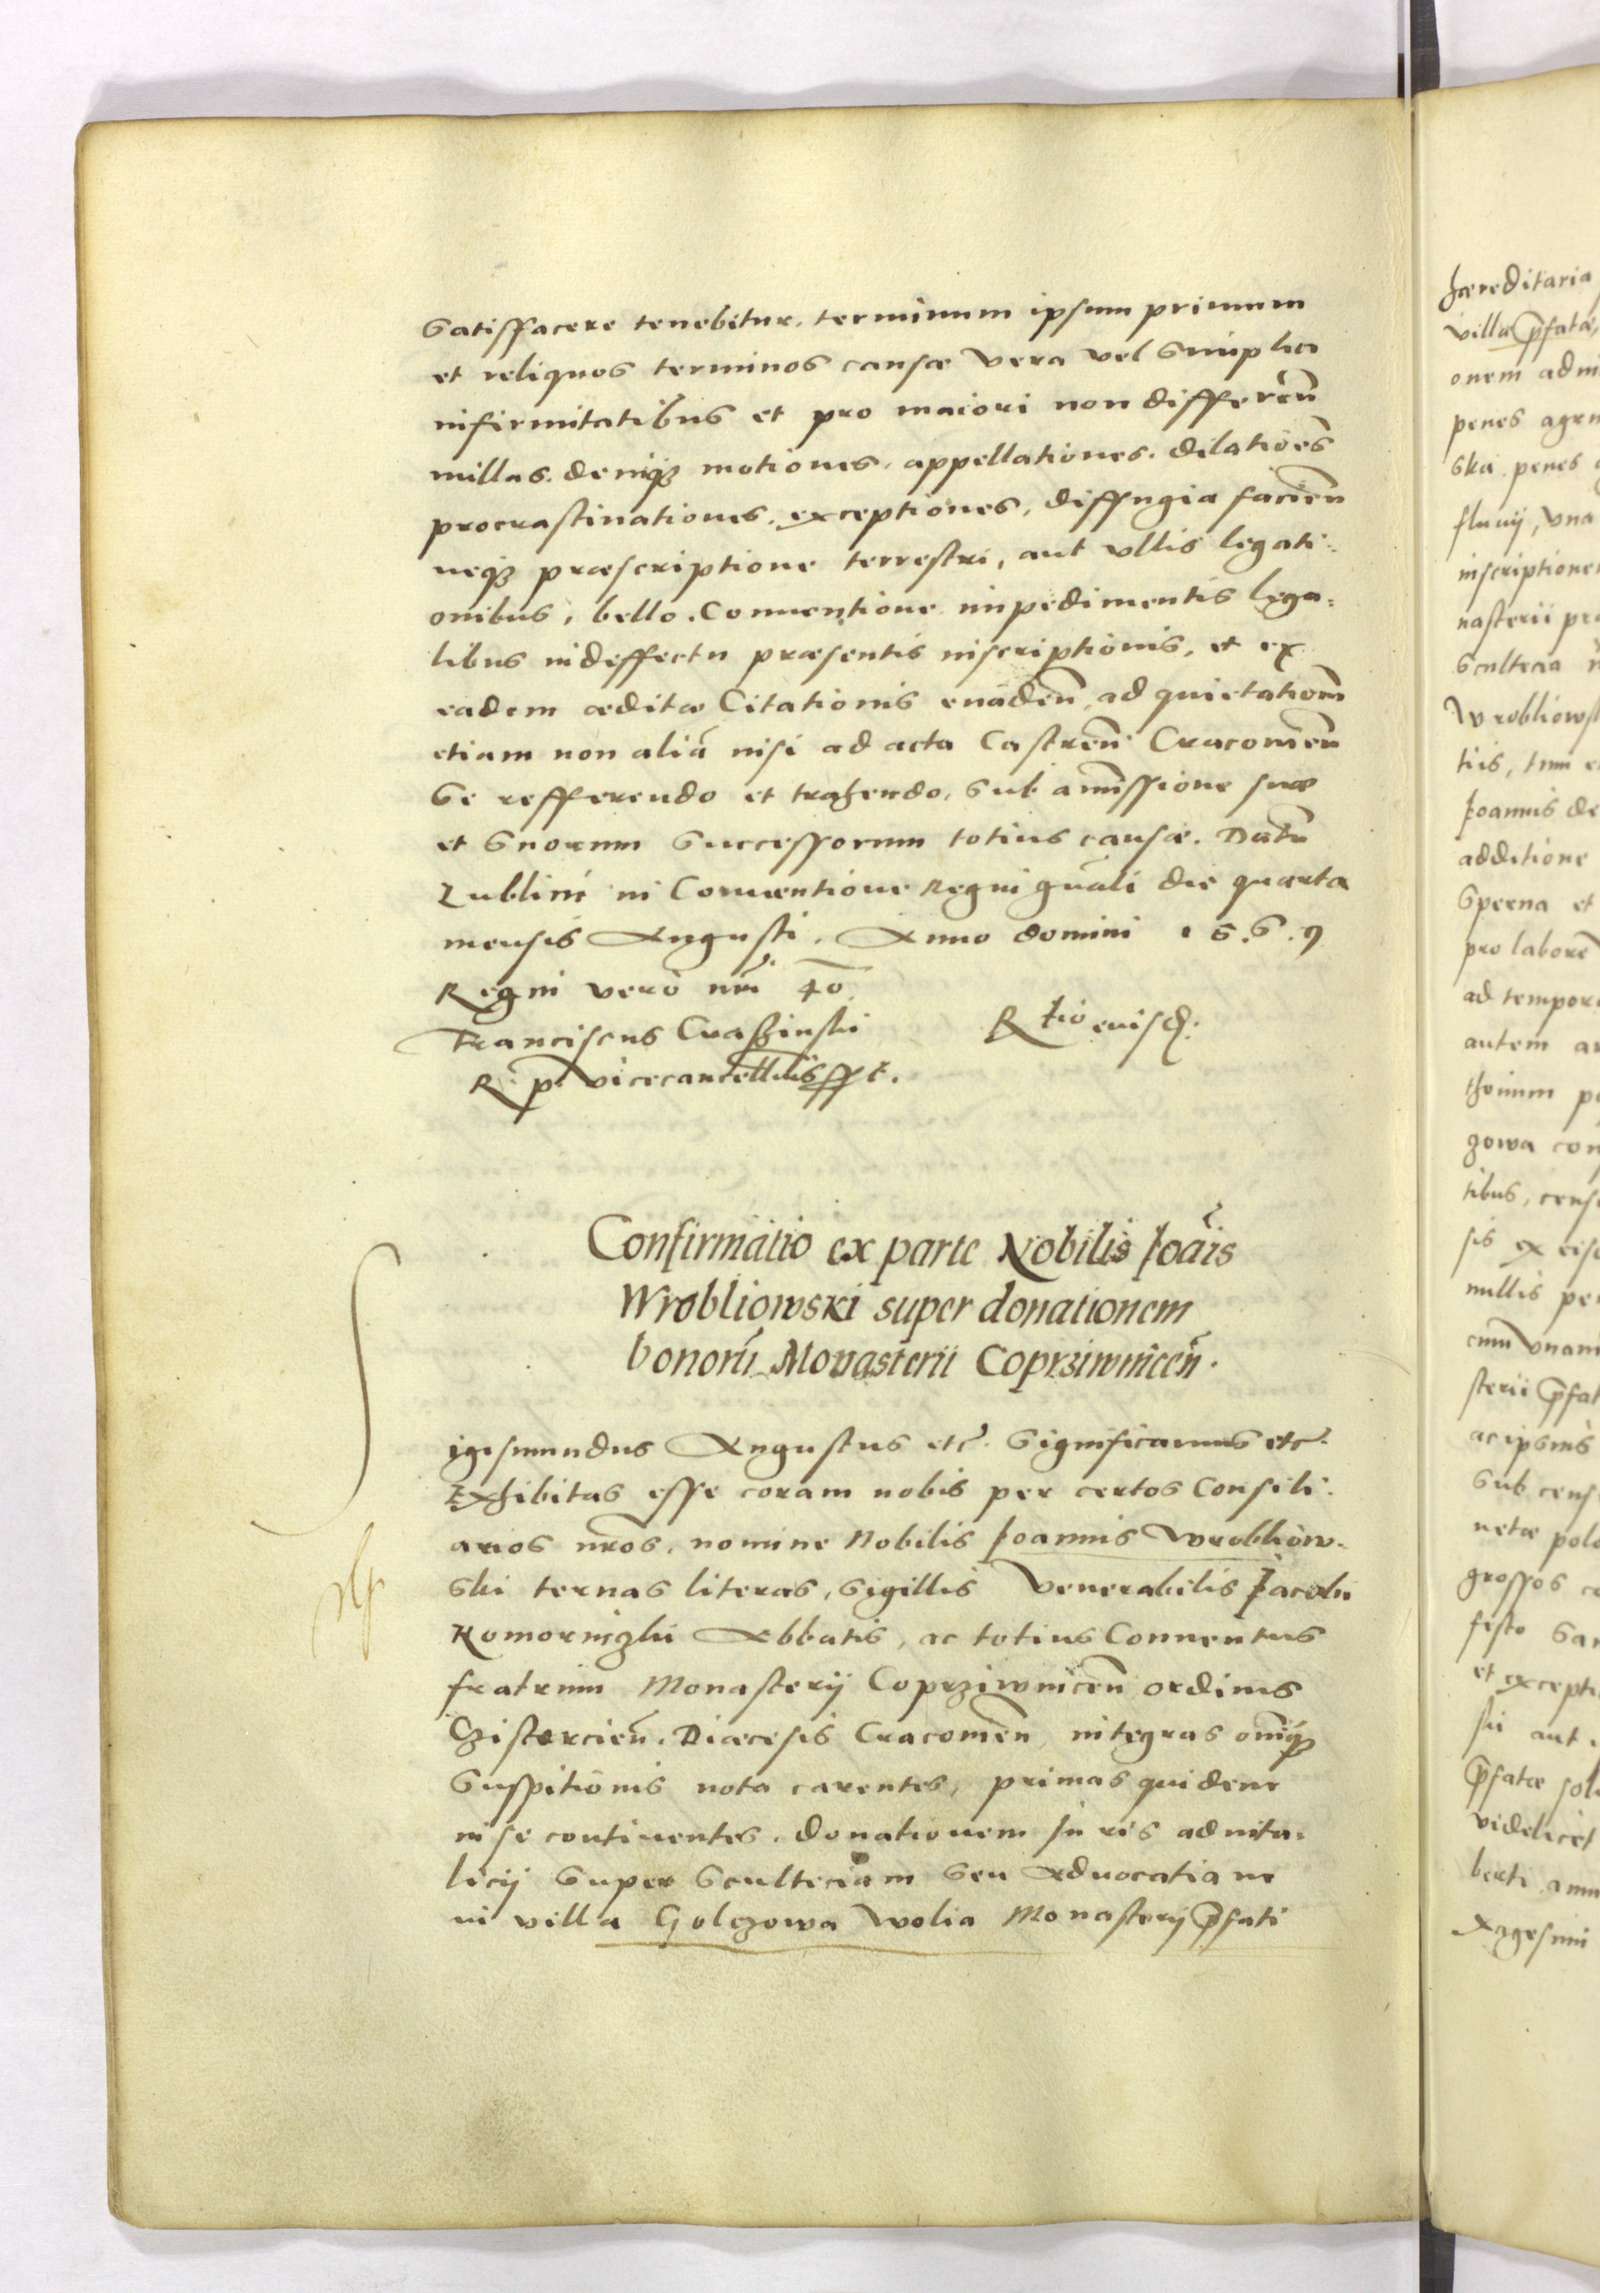 satisfacere tenebitur, terminum ipsum primum
et reliquos terminos causae vera vel simplici
infirmitatibus et pro maiori non differen̄
nullas deniq3 motiones, appellationes, dilatioēs
procrastinationes, exceptiones, diffugia facien̄
neq3 praescriptione terrestri, aut vllis legati-
onibus, bello, Conuentione impedimentis lega-
libus indeffectu praesentis inscriptionis, et ex
eadem aeditae Citationis euaden̄, ad quietationem̄
etiam non aliā nisi ad acta Castren̄ Cracouien̄
se refferendo et trahendo, sub amissione suae
et suorum successorum totius causae. Datū
Lublini in Conuentione Regni gn̄ali die quarta
mensis Augusti. Anno domini 1 5. 6. 9
Regni vero nr̄i 40
Franciscus Crassinski
R. p. vicecancellarius sst.
R tio eiusd:
Confirmatio ex parte Nobilis Ioān̄is
Wrobliowski super donationem
bonorū Monasterii Coprziwnicen̄.
Sigismundus Augustus etc̄. Significamus etc̄.
Exhibitas esse coram nobis per certos Consili-
arios nr̄os, nomine Nobilis Ioannis Wrobliow-
ski ternas literas, sigillis Venerabilis Iacobi
Komorniczki Abbatis, ac totius Conuentus
fratrum Monasterij Coprziwnicen̄ ordinis
Czistercien̄. Diaecesis Cracouien̄, integras omīq3
suspitionis nota carentes, primas quidem
in se continentes, donationem Iuris aduita-
licij super sculteciam seu Aduocatiam
in villa Golczowa Wolia Monasterij p̄fati
haereditaria
villae p̄fatae,
onem
penes
ski penes
fluuij, vna
inscriptione
nasterii
scultecia
Wrobliows
tiis, tum
Ioannis de
additione
sperna et
pro laborē
ad tempor
autem
thonium
zowa con
tibus, cens
sis ex eis
nullis pe
cum vnam
sterii p̄fat
ac ipsius
sub cens
netae polo
grossos
festo San
et except
sii aut
p̄fatae sol
videlicet
berti ann
xagesimi